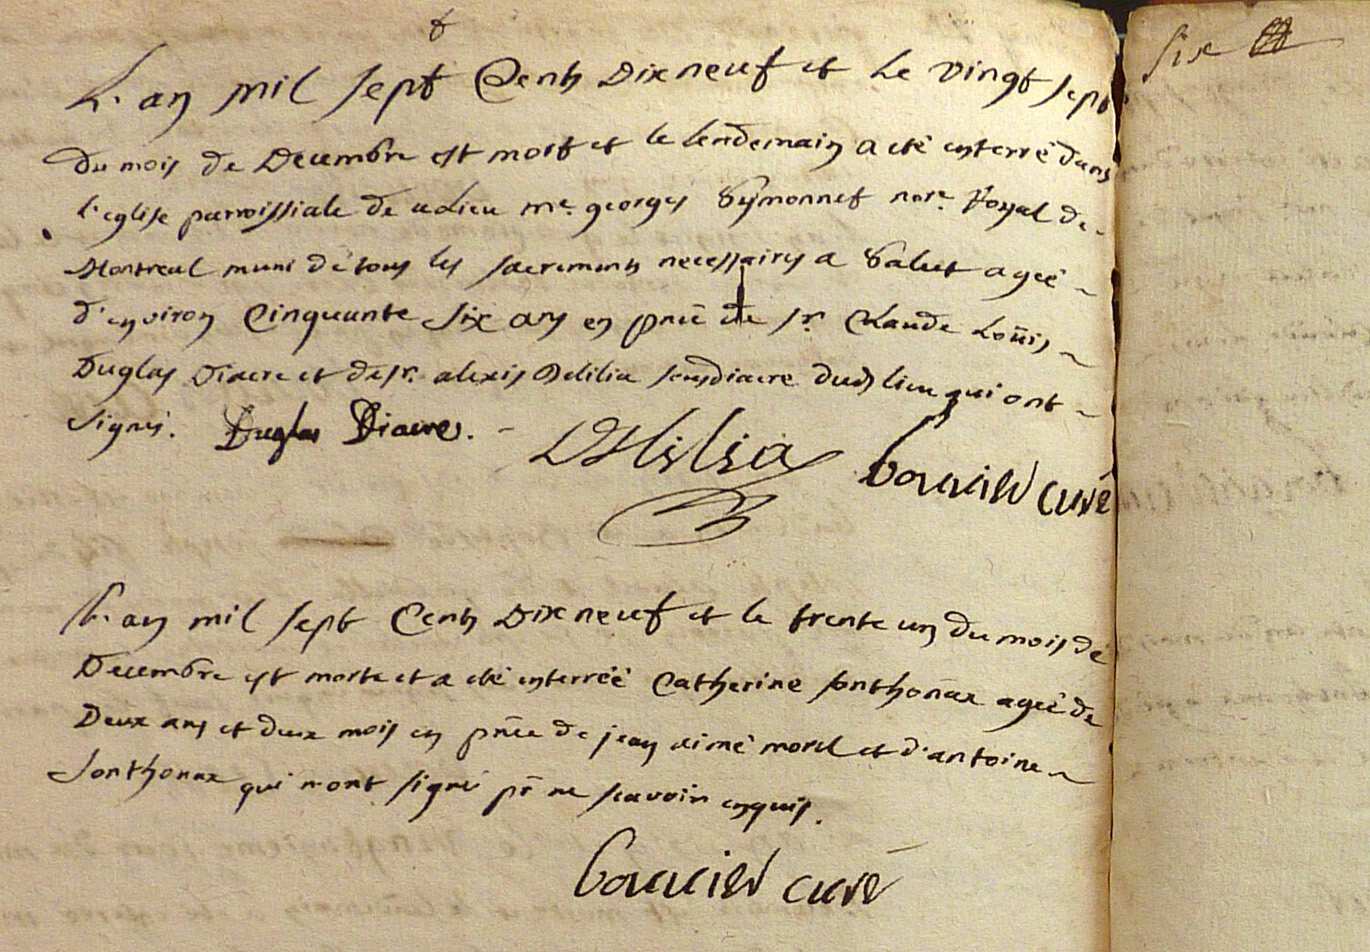 six
L'an mil sept Cents Dixneuf et Le vingt sept
du mois de Decembre est mort et le lendemain a eté enterré dans
l'eglise parroissiale de ce Lieu me. georges Seymonnet nore. Royal de
Montreal muni de tous les sacrements necessaires a Salut ageé
d'environ Cinquante six ans en pnce de sr. Claude Loüis
Duglas Diacre et de sr. alexis Delilia sousdiacre dud lieu qui ont
signés. Duglas Diacre. Delilia curé
L'an mil sept Cents Dixneuf et le trente un du mois de
Decembre est morte et a eté enterreé Catherine sonthonax ageé de
Deux ans et deux mois en pnce de jean aimé morel et d'antoine
sonthonax qui n'ont signé pr ne scavoir enquis.
curé